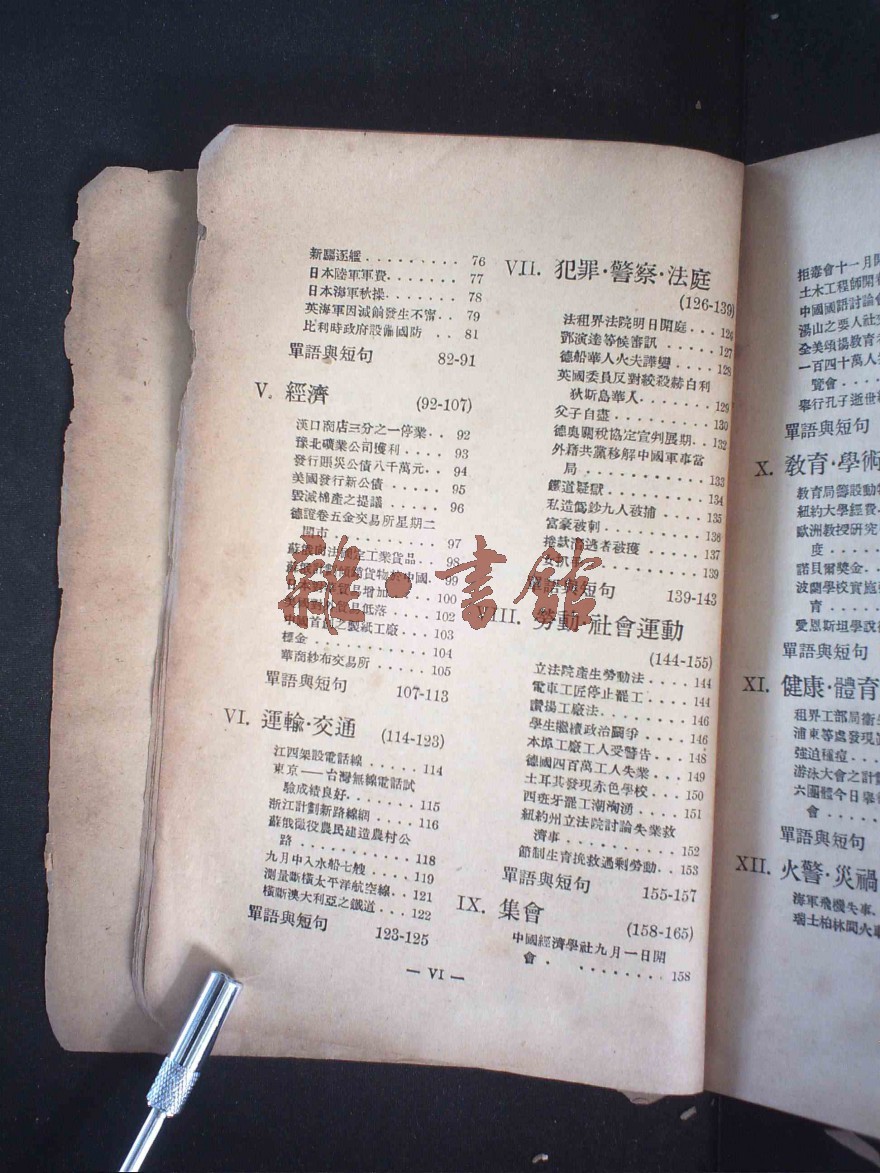 新驅逐艦 . . . . . . . . . 76
日本陸軍軍費 . . . . . . . 77
日本海軍秋操 . . . . . . . 78
英海軍因減餉發生不甯 . . 79
比利時政府設備國防 . . 81
單語與短句 82-91
V. 經濟
(92-107)
漢口商店三分之一停業 . . 92
豫北礦業公司獲利 . . . . 93
發行賑災公債八千萬元 . . 94
美國發行新公債 . . . . . 95
毀滅棉產之提議 . . . . . 96
德證卷五金交易所星期二
開市 . . . . . . . . . 97
蘇俄向法國定工業貨品 . . 98
貨物於中國 . 99
貿易增加 . . . 100
貿易低落 . . . . 102
中國首創之製紙工廠 . . . 103
標金 . . . . . . . . . . . 104
華商紗布交易所 . . . . . 105
單語與短句 107-113
VI. 運輸·交通 (114-123)
江西架設電話線 . . . . . 114
東京——台灣無線電話試
驗成績良好 . . . . . . 115
浙江計劃新路線網 . . . . 116
蘇俄徵役農民建造農村公
路 . . . . . . . . . . 118
九月中入水船七艘 . . . . 119
測量斷橫太平洋航空線 . . 121
橫斷澳大利亞之鐵道 . . . 122
單語與短句 123-125
VII. 犯罪·警察·法庭
(126-139)
法租界法院明日開庭 . . . 126
鄧演達等候審訊 . . . . . 127
德船華人火夫譁變 . . . . 128
英國委員反對絞殺赫白利
狄斯島華人 . . . . . . . 129
父子自盡 . . . . . . . . 130
德奧關稅協定宣判展期 . . 132
外籍共黨移解中國軍事當
局 . . . . . . . . . . 133
鐵道疑獄 . . . . . . . . 134
私造僞鈔九人被捕 . . . . 135
富豪被刺 . . . . . . . . 136
捲款潛逃者被獲 . . . . . 137
女扒手 . . . . . . . . . 139
單語與短句 139-143
VIII. 勞動·社會運動
(144-155)
立法院產生勞動法 . . . . 144
電車工匠停止罷工 . . . . 144
讚揚工廠法 . . . . . . . 146
學生繼續政治鬪爭 . . . . 146
本埠工廠工人受警告 . . . 148
德國四百萬工人失業 . . . 149
土耳其發現赤色學校 . . . 150
西班牙罷工潮洶湧 . . . . 151
紐約州立法院討論失業救
濟事 . . . . . . . . . 152
節制生育挽救過剩勞動 . . 153
單語與短句 155-157
IX. 集會
(158-165)
中國經濟學社九月一日開
會 . . . . . . . . . 158
— VI —
拒毒會十一月開
土木工程師開
中國國語討論會
湯山之要人社交
全美頌揚教育
一百四十萬人
覽會 . . . .
舉行孔子逝世
單語與短句
X. 教育·學術
教育局籌設動物
紐約大學經費
歐洲教授研究
度 . . . . .
諾貝爾獎金 . .
波蘭學校實施
育 . . . . .
愛恩斯坦學說
單語與短句
XI. 健康·體育
租界工部局衞生
浦東等處發現
強迫種痘 . . .
游泳大會之計
六團體今日舉
會 . . . . .
單語與短句
XII. 火警·災禍
海軍飛機失事
瑞士柏林間火車
雜·書館